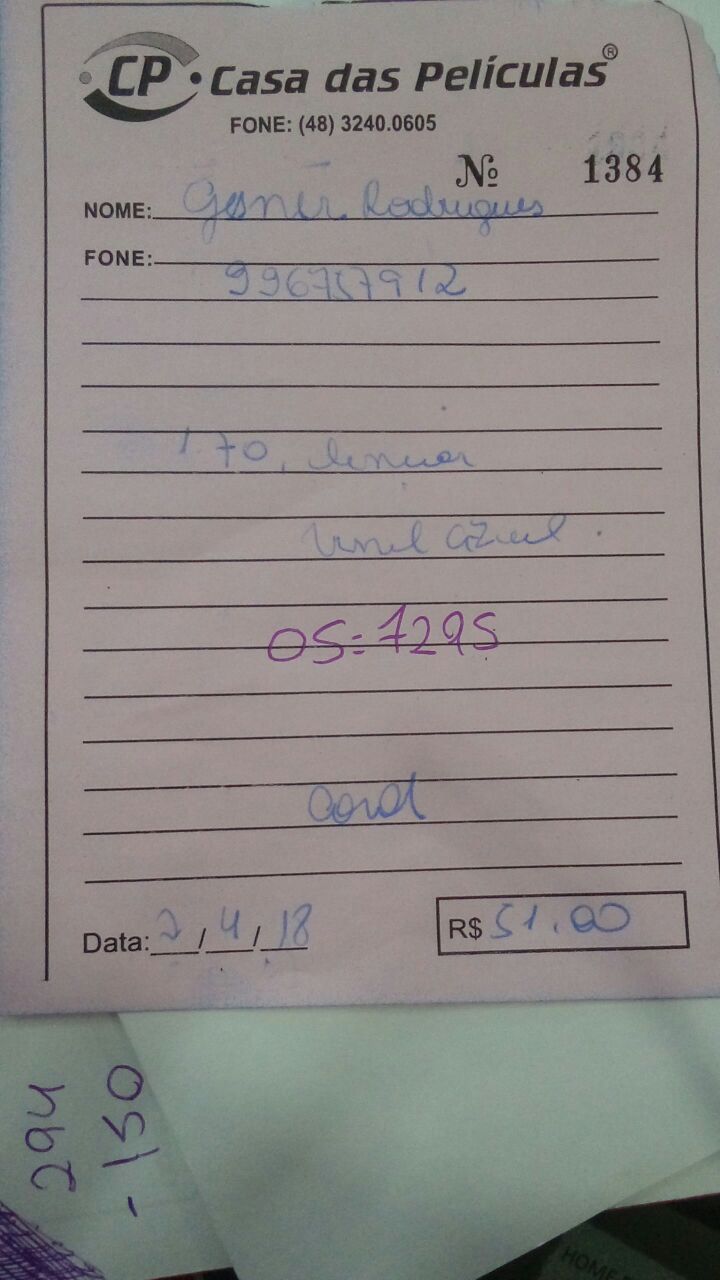 CP Casa das Películas®
FONE: (48) 3240.0605
Nº 1384
NOME: Rodrigues
FONE:
996757912
1 70,
azul.
OS=7295
Data: 2/4/18
R$ 51.00
294
-150
HOME